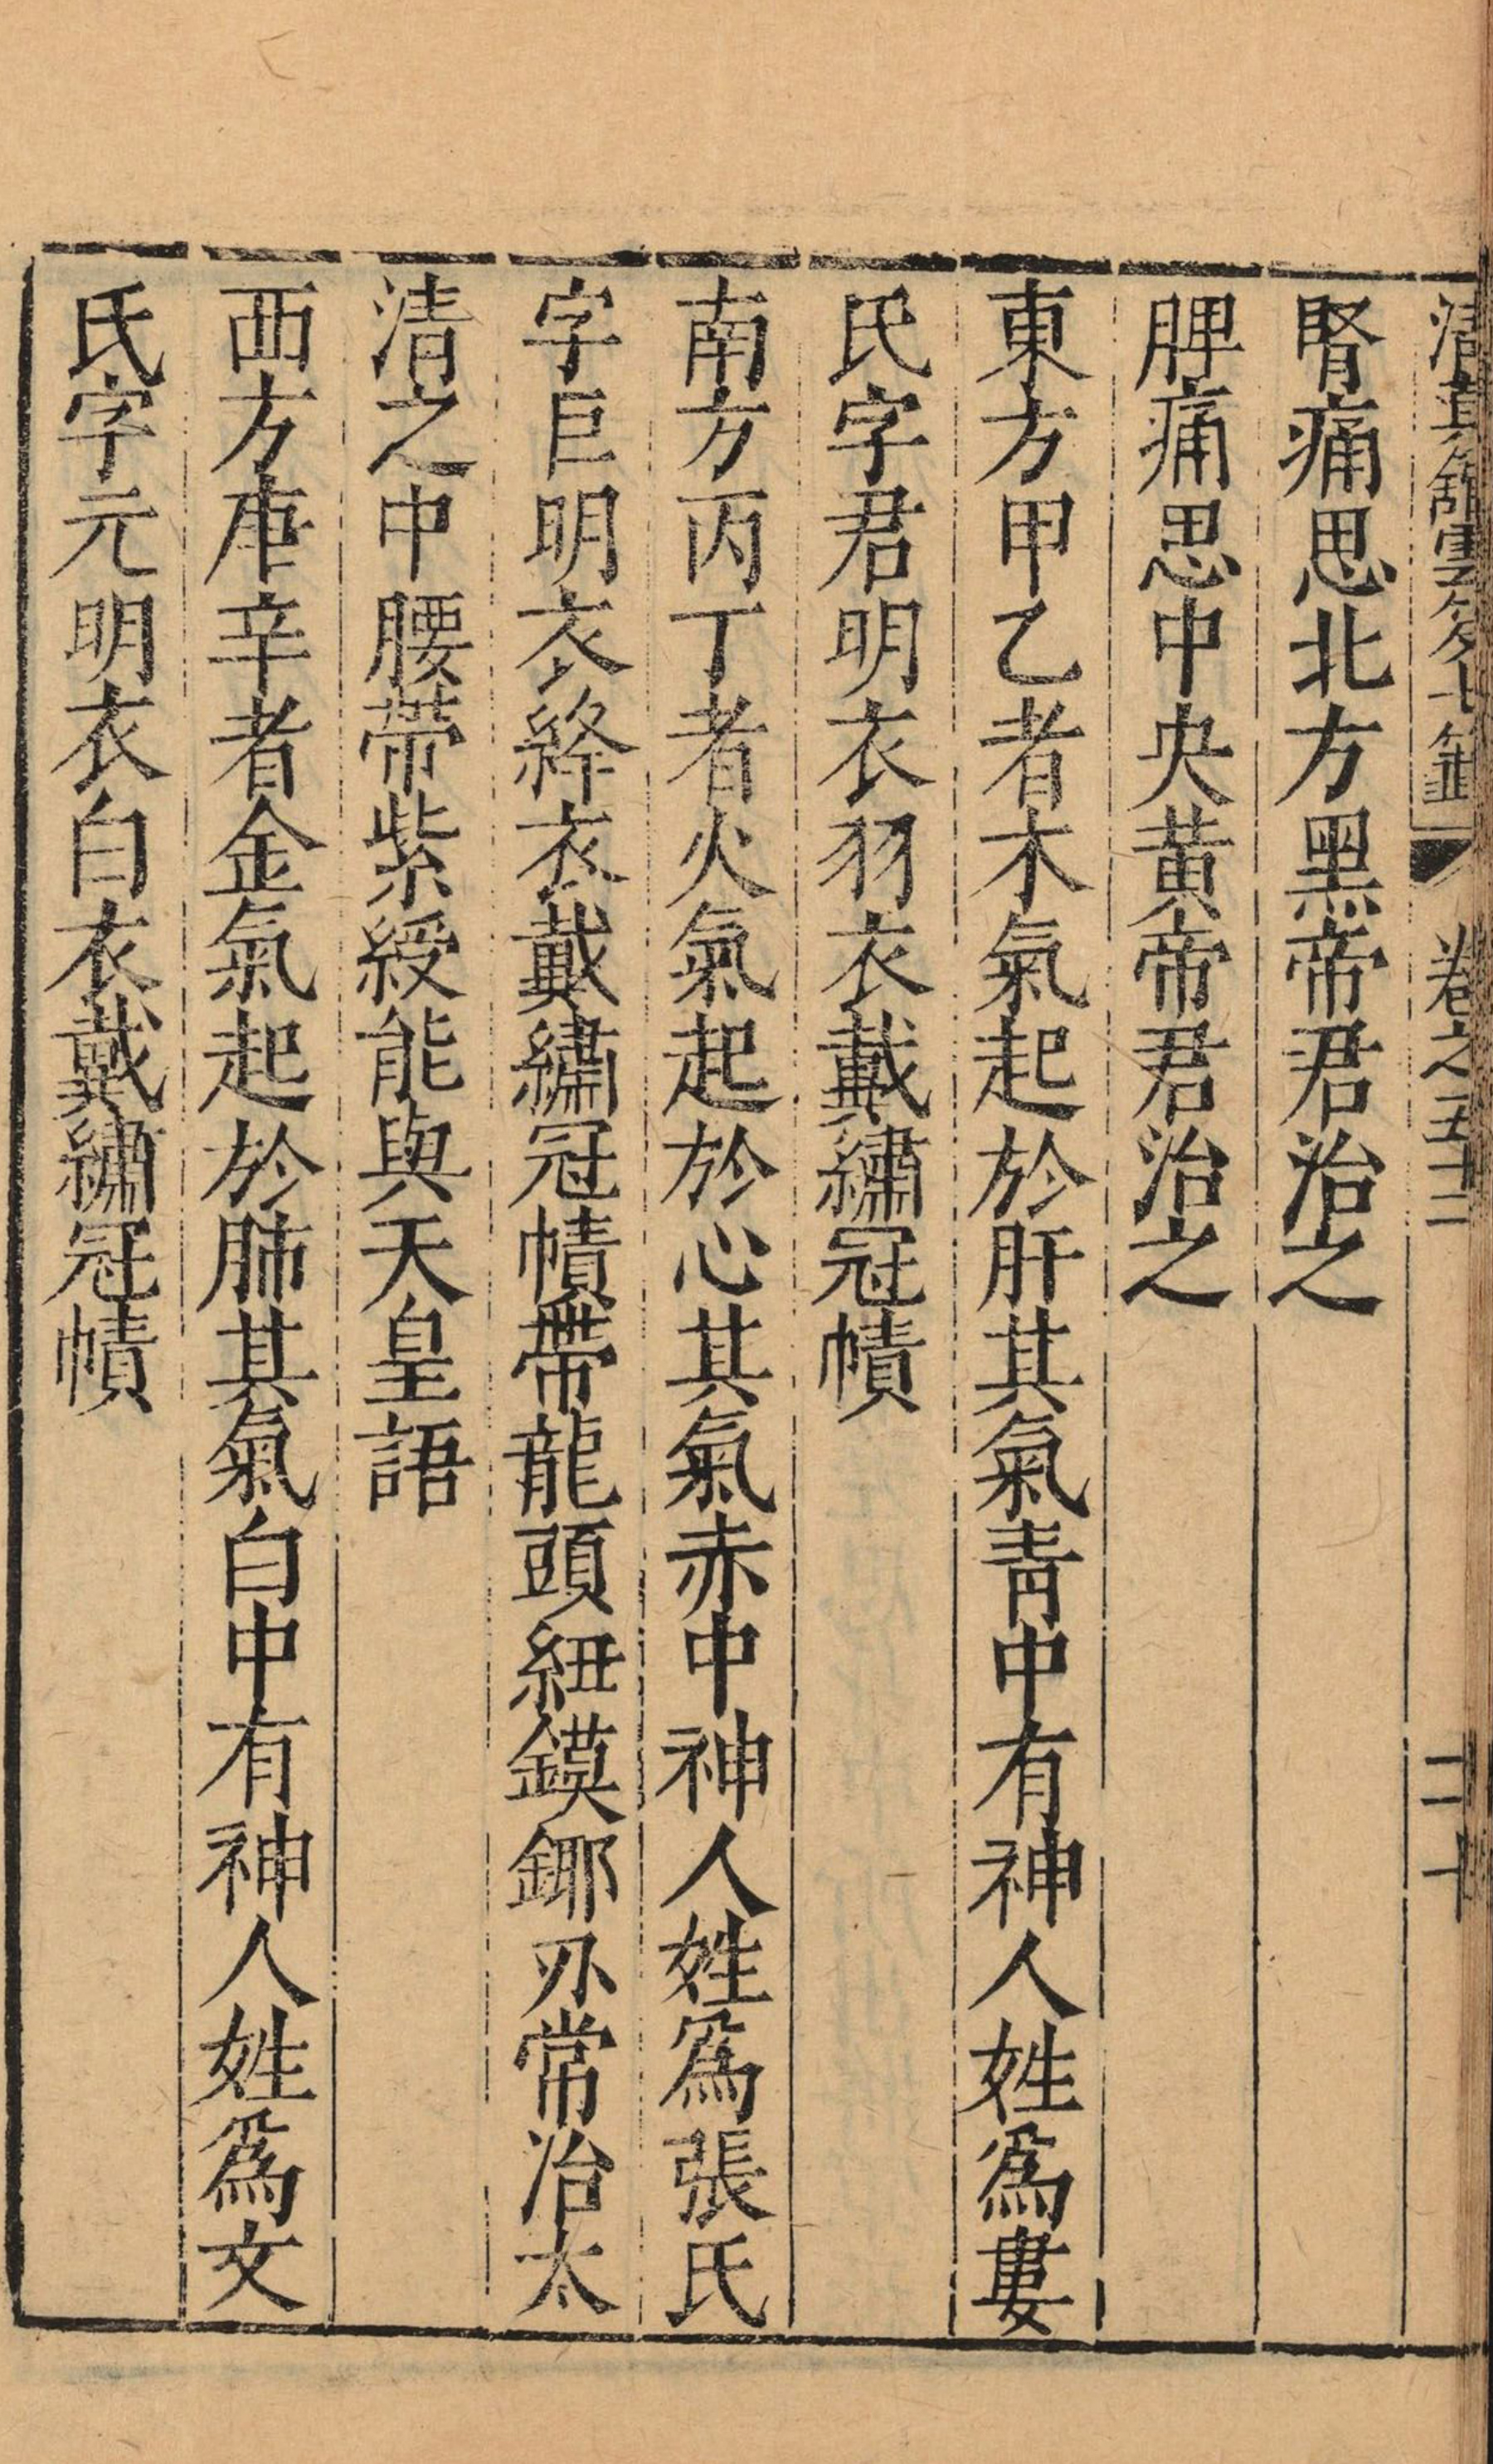 清真館雲笈七籤 卷之五十二 二十
腎痛思北方黑帝君治之
脾痛思中央黃帝君治之
東方甲乙者木氣起於肝其氣青中有神人姓爲婁
氏字君明衣羽衣戴繡冠幘
南方丙丁者火氣起於心其氣赤中神人姓爲張氏
字巨明衣絳衣戴繡冠幘帶龍頭紐鏌鎁刃常治太
清之中腰帶紫綬能與天皇語
西方庚辛者金氣起於肺其氣白中有神人姓爲文
氏字元明衣白衣戴繡冠幘